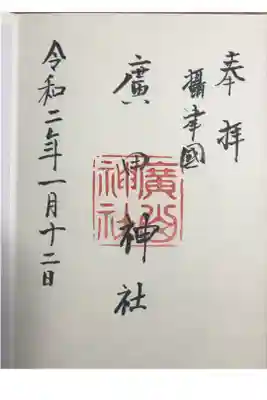 奉拝
攝津國
廣田神社
令和二年一月十二日
廣田神社